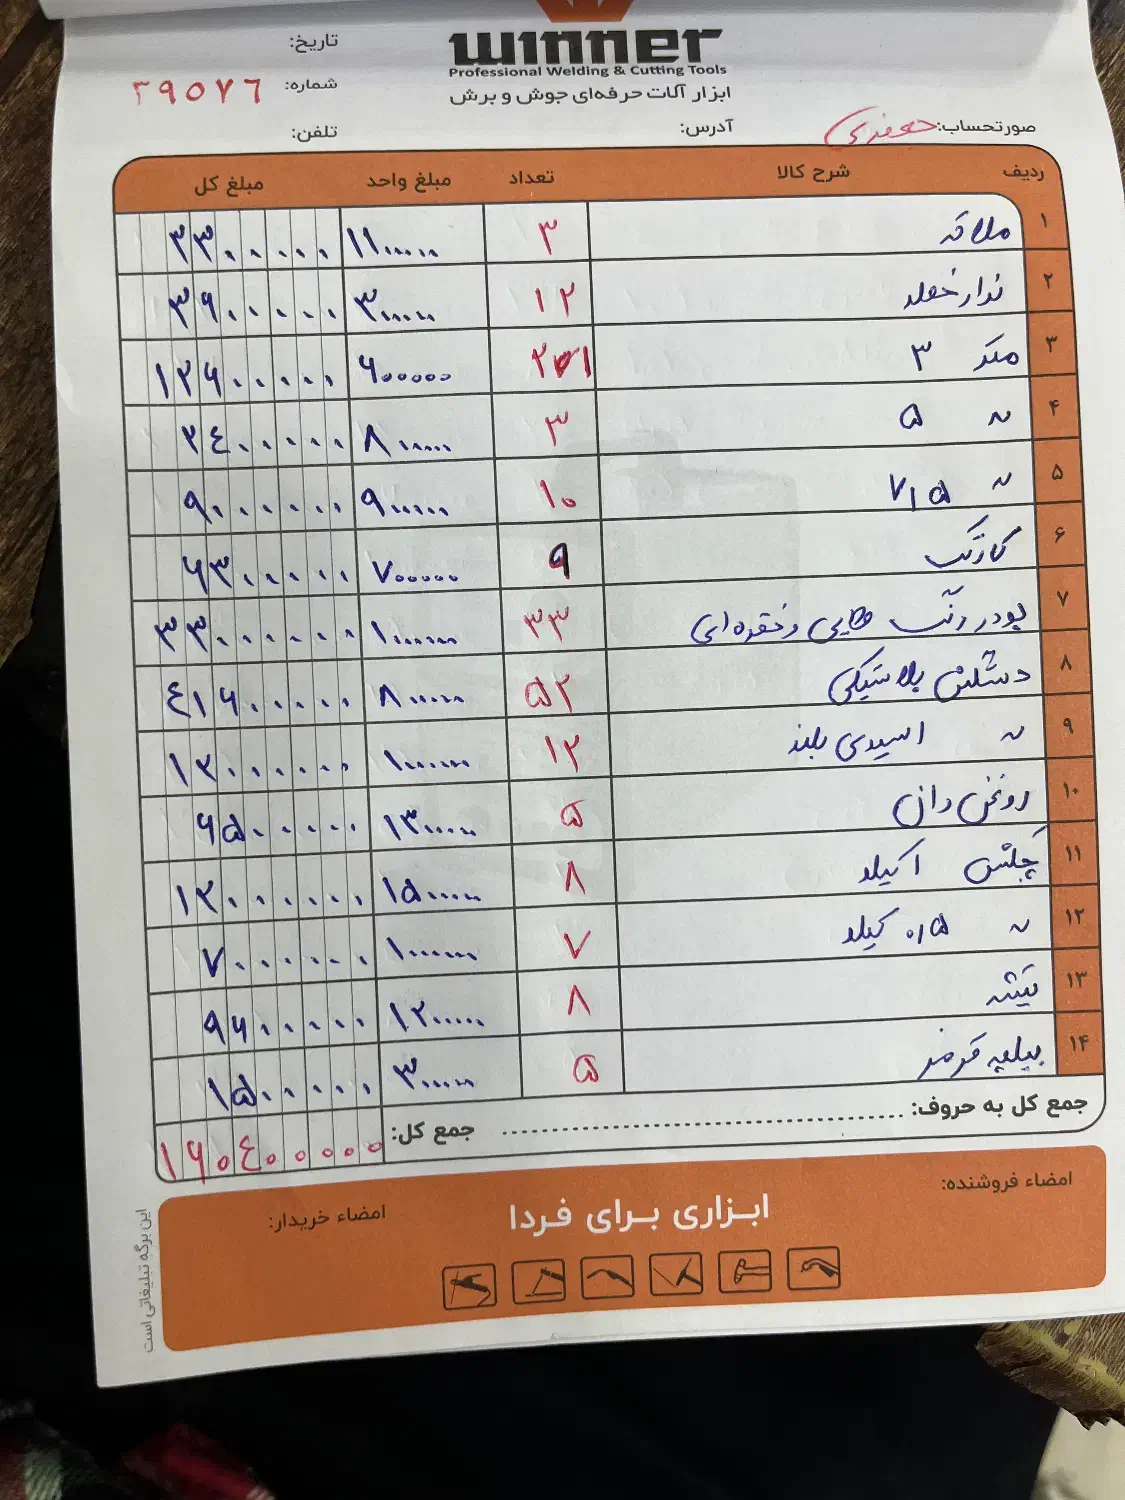 winner
Professional Welding & Cutting Tools
ابزار آلات حرفه‌ای جوش و برش
تاریخ:
شماره: ۲۹۵۷۶
صورتحساب: جعفری آدرس: تلفن:
ردیف شرح کالا تعداد مبلغ واحد مبلغ کل
۱ ملاقه ۳ ۱۱۰۰۰۰۰ ۳۳۰۰۰۰۰
۲ ۱۲ ۳۰۰۰۰۰ ۳۶۰۰۰۰۰
۳ متر ۳ ۲۱ ۶۰۰۰۰۰ ۱۲۶۰۰۰۰۰
۴ ~ ۵ ۳ ۸۰۰۰۰۰ ۲۴۰۰۰۰۰
۵ ~ ۷٫۵ ۱۰ ۹۰۰۰۰۰ ۹۰۰۰۰۰۰
۶ ۹ ۷۰۰۰۰۰ ۶۳۰۰۰۰۰
۷ پودر رنگ طلایی و نقره‌ای ۳۳ ۱۰۰۰۰۰۰ ۳۳۰۰۰۰۰۰
۸ دستکش پلاستیکی ۵۲ ۸۰۰۰۰۰ ۴۱۶۰۰۰۰۰
۹ ~ اسیدی بلند ۱۲ ۱۰۰۰۰۰۰ ۱۲۰۰۰۰۰۰
۱۰ روغن دان ۵ ۱۳۰۰۰۰۰ ۶۵۰۰۰۰۰
۱۱ چکش ۱ کیلو ۸ ۱۵۰۰۰۰۰ ۱۲۰۰۰۰۰۰
۱۲ ~ ۰٫۵ کیلو ۷ ۱۰۰۰۰۰۰ ۷۰۰۰۰۰۰
۱۳ تیشه ۸ ۱۲۰۰۰۰۰ ۹۶۰۰۰۰۰
۱۴ بیلچه قرمز ۵ ۳۰۰۰۰۰ ۱۵۰۰۰۰۰
جمع کل به حروف: جمع کل: ۱۶۰۴۰۰۰۰۰
امضاء فروشنده: امضاء خریدار:
ابزاری برای فردا
این برگه تبلیغاتی است